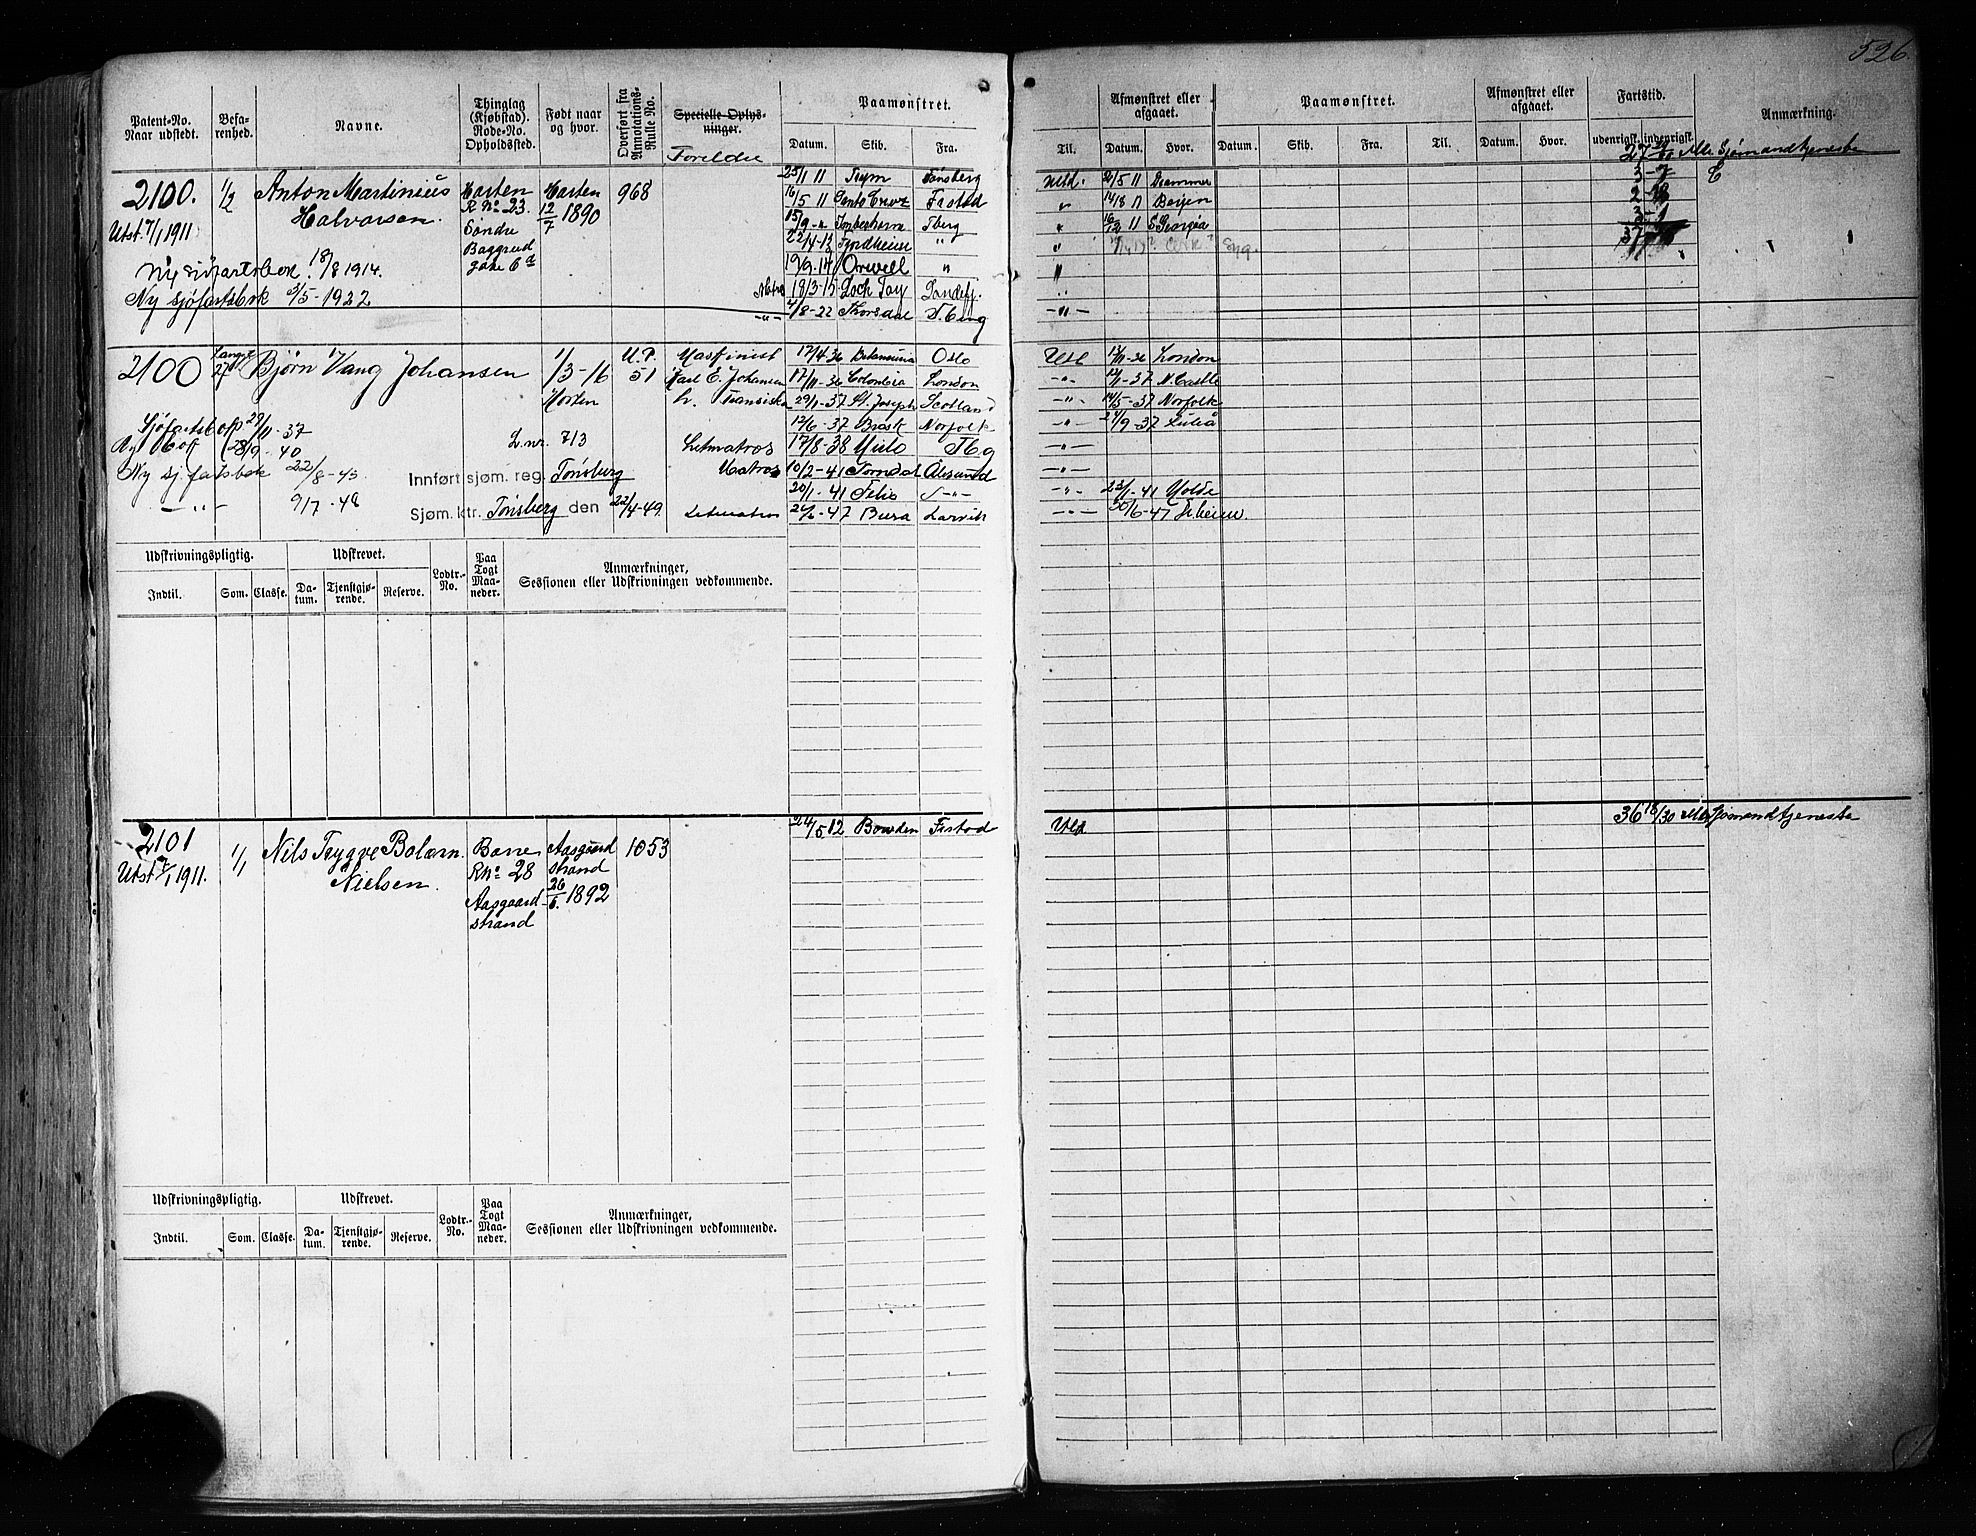 526.
Patent-No. Naar udstedt.
Befarenhed.
Navne.
Thinglag (Kjøbstad). Rode-No. Opholdssted.
Født naar og hvor.
Overført fra Annotations-Rulle No.
Specielle Oplysninger.
Foreldre
Paamønstret.
Datum. Skib. Fra.
Til.
Afmønstret eller afgaaet.
Datum. Hvor.
Paamønstret.
Datum. Skib. Fra. Til.
Afmønstret eller afgaaet.
Datum. Hvor.
Fartstid.
udenrigsk. indenrigsk.
Anmærkning.
2100.
Utst 7/1 1911
1/2
Anton Martinius
Halvorsen.
Horten
R No 23.
Søndre
Baggrud
gate 6a
Horten
12/7 1890
968
Ny sjøfartsbok 18/8 1914.
Ny sjøfartsbok 3/5-1922
25/1 11 Tønsberg
16/5 11 Santo Cruz Frstad
15/9 Tberg
22/4-13 "
19/9-14 Orwell "
Matro 18/3-15 Loch Tay Sandefj.
-"- 4/8-22 Thorsdal
Utld. 2/5 11 Drammen
" 14/8 11 Bergen
" 16/12 11 S Georgia
"
"
"
-"-
Sjømandstjeneste
3-7
3-1
2100
27
Bjørn Vang Johansen
1/3-16
Horten
U.P.
51
Maskinist
Karl E. Johansen
17/4-36 Oslo
17/11-36 Colombia London
29/1-37 St. Joseph Scotland
12/6-37 Brask Norfolk
17/8-38 Tbg
10/2-41 Torndal Ålesund
20/1-41 Felix -"-
24/6-47 Bura Larvik
Sjøfartsbok 29/11-37
28/9-40
Ny sj.fartsbok 22/8-43
-"- 9/7-48
L.nr. 713
Letmatros
Matros
Letmatros
Innført sjøm. reg. Tønsberg
Sjøm. ktr. Tønsberg den 22/4-49.
Utl 17/11-36 London
-"- 12/1-37 N. Castle
-"- 14/5-37 Norfolk
-"- 24/9-37 Luleå
-"-
-"-
-"- 23/1-41 Molde
-"- 30/6-47
Udskrivningspligtig.
Indtil. Som. Classe.
Udskrevet.
Datum. Tjenstgjørende. Reserve.
Lodtr.-No.
Paa Togt Maaneder.
Anmærkninger,
Sessionen eller Udskrivningen vedkommende.
2101
Utst 7/1 1911.
1/1
Nils Trygve Bolærn
Nielsen.
Borre
R No 28
Aasgaard-
strand
Aasgaard
strand
26/6. 1892
1053
24/5 12 Bowden Frstad
Utl
36 18/30 Sjømandstjeneste
Udskrivningspligtig.
Indtil. Som. Classe.
Udskrevet.
Datum. Tjenstgjørende. Reserve.
Lodtr.-No.
Paa Togt Maaneder.
Anmærkninger,
Sessionen eller Udskrivningen vedkommende.